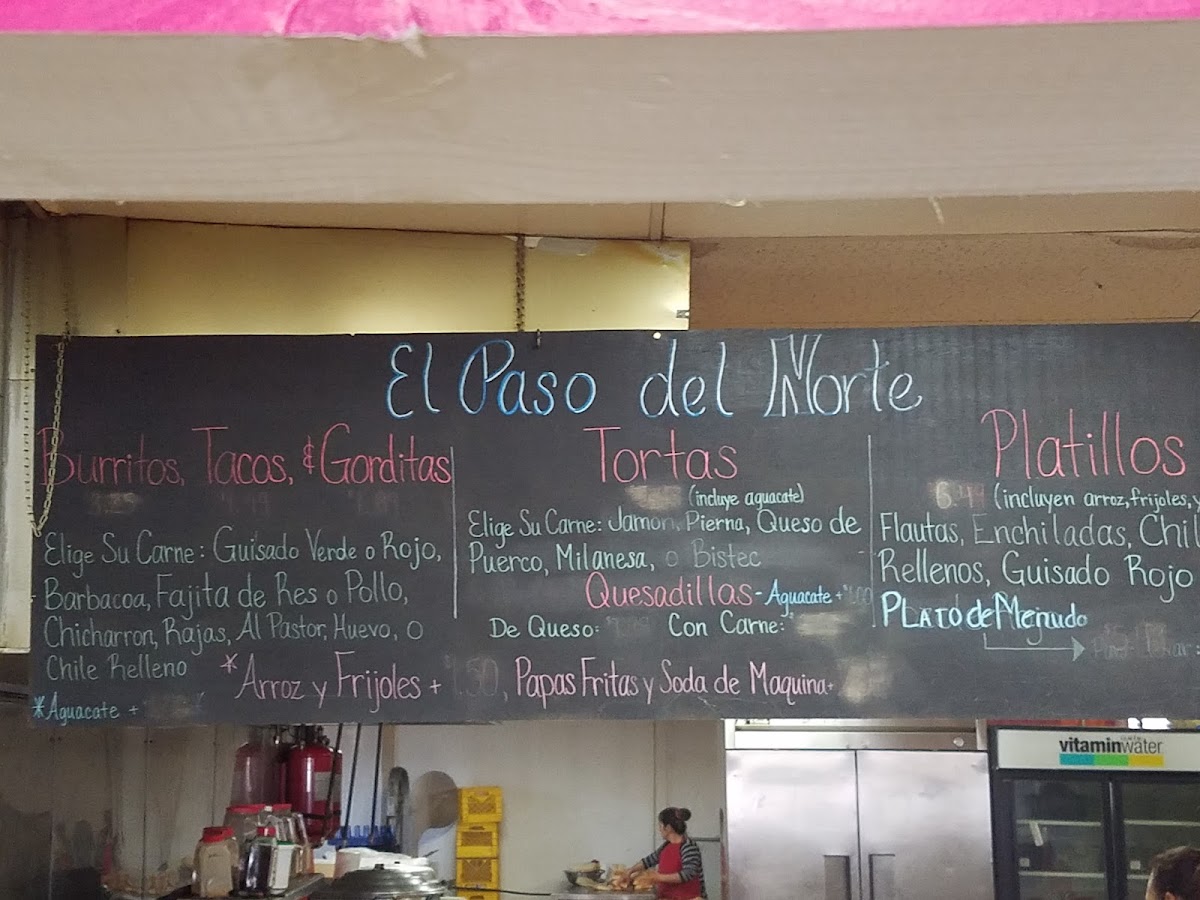 El Paso del Norte
Burritos, Tacos, & Gorditas
Elige Su Carne: Guisado Verde o Rojo,
Barbacoa, Fajita de Res o Pollo,
Chicharron, Rajas, Al Pastor, Huevo, o
Chile Relleno
*Aguacate +
*Arroz y Frijoles + 1.50, Papas Fritas y Soda de Maquina+
Tortas
(incluye aguacate)
Elige Su Carne: Jamon, Pierna, Queso de
Puerco, Milanesa, o Bistec
Quesadillas - Aguacate +
De Queso: Con Carne:
Platillos
(incluyen arroz, frijoles, y
Flautas, Enchiladas, Chil
Rellenos, Guisado Rojo
Plato de Menudo
vitaminwater